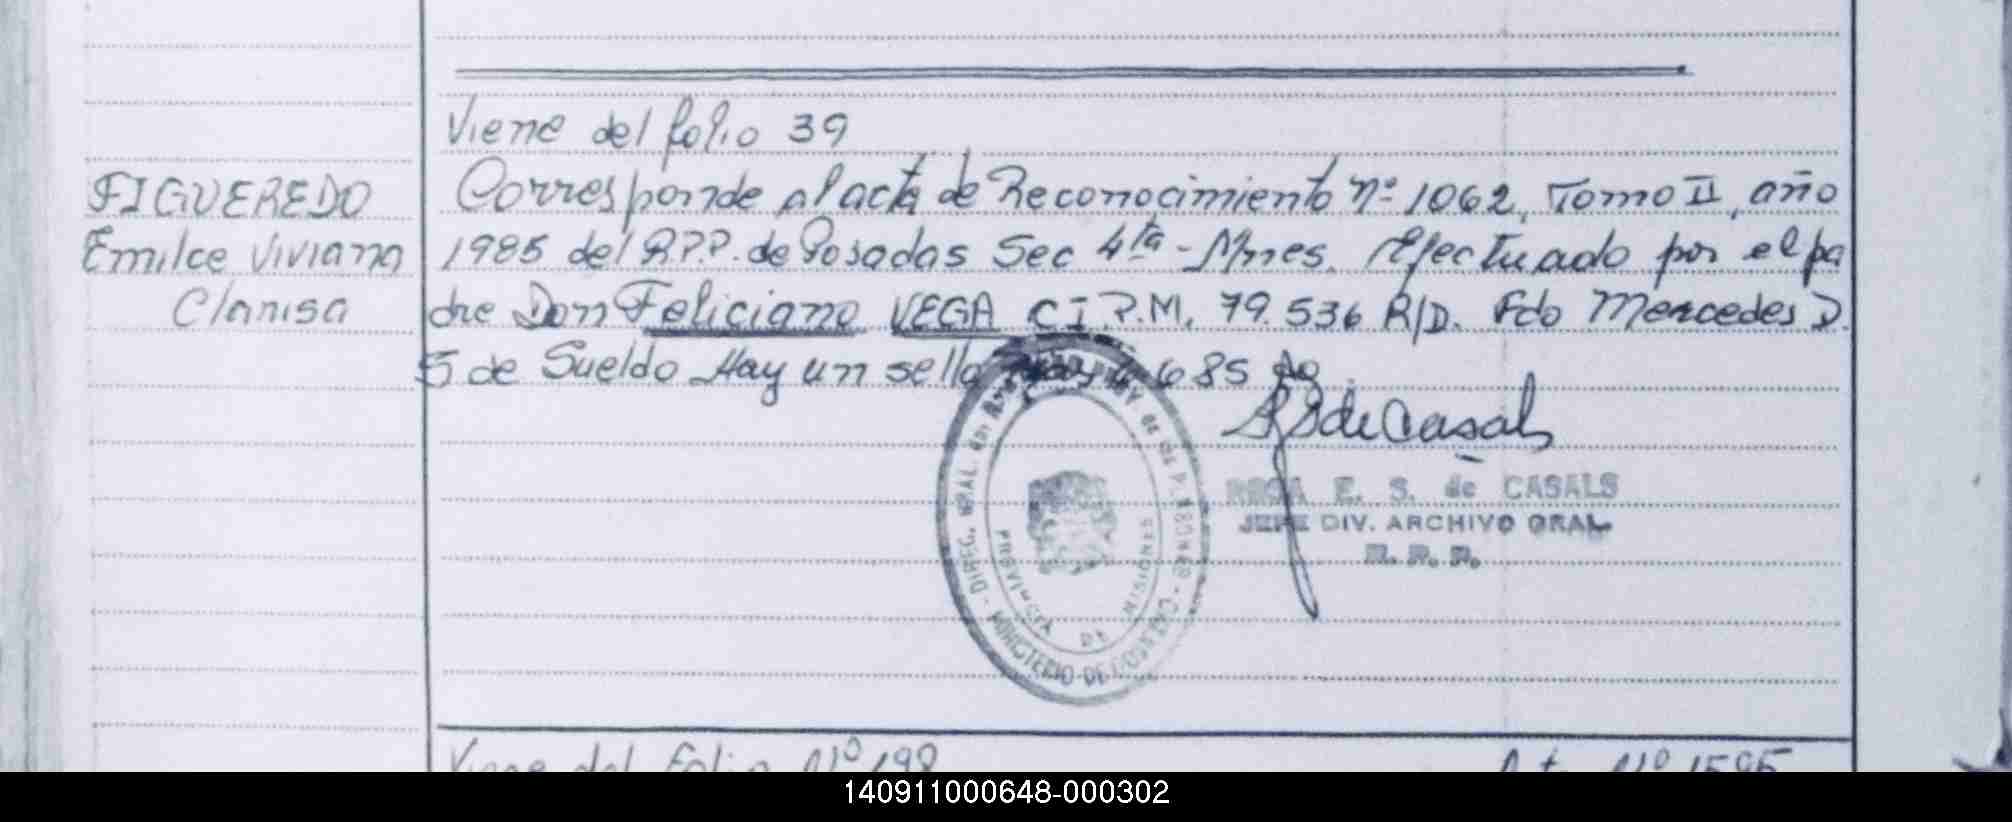 Viene del folio 39
FIGUEREDO
Emilce Viviana
Clarisa
Corresponde al acta de Reconocimiento Nº 1062, Tomo II, año
1985 del R.P.P. de Posadas Sec 4ta - Mnes. Efectuado por el pa
dre Don Feliciano VEGA C.I.P.M. 79.536 R/D. Fdo Mercedes D.
S de Sueldo Hay un sello 685
RSde Casals
ROSA E. S. de CASALS
JEFE DIV. ARCHIVO GRAL
R. P. P.
DIREC. GRAL. del
de las PERSONAS
MINISTERIO DE GOBIERNO
PROVINCIA DE MISIONES
Viene del Folio Nº 198
Nº 1595
140911000648-000302